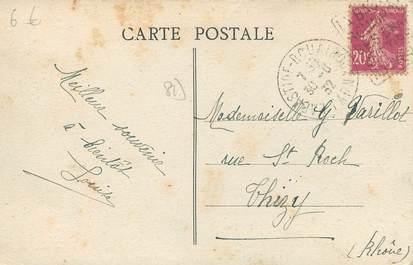 6 €
CARTE POSTALE
20c
Meilleur souvenir
à bientôt
Louise
Mademoiselle G. Parillot
rue St Roch
Thizy
(Rhône)